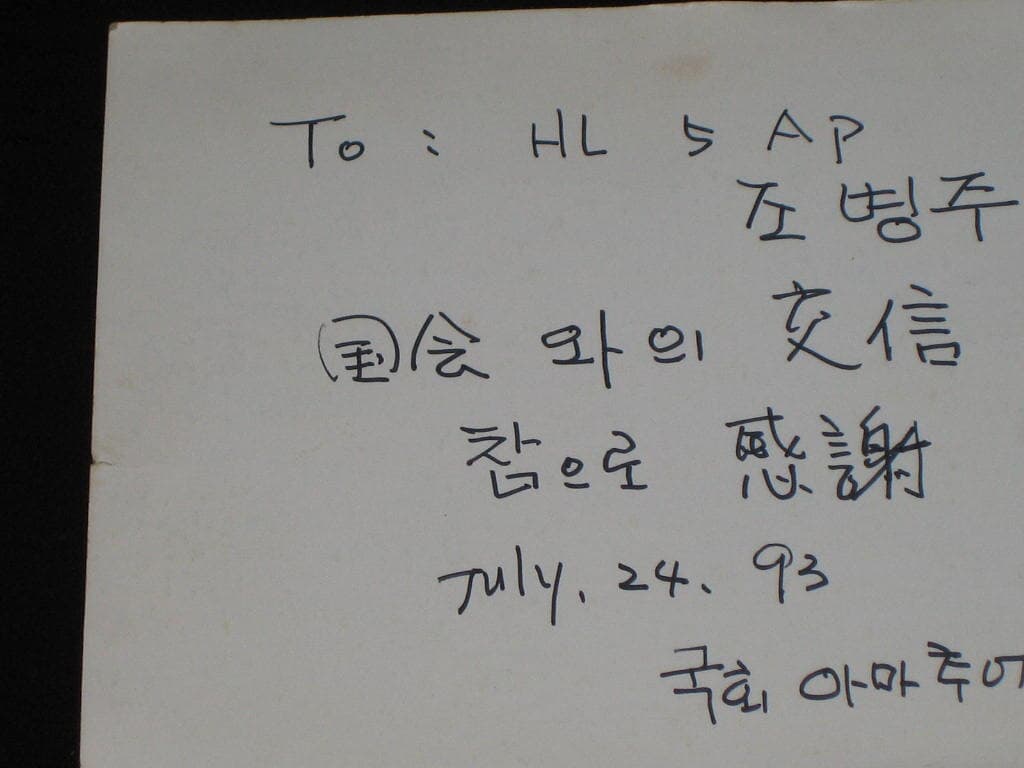 To : HL 5 AP
조병주
国会 와의 交信
참으로 感謝
July. 24. 93
국회 아마추어